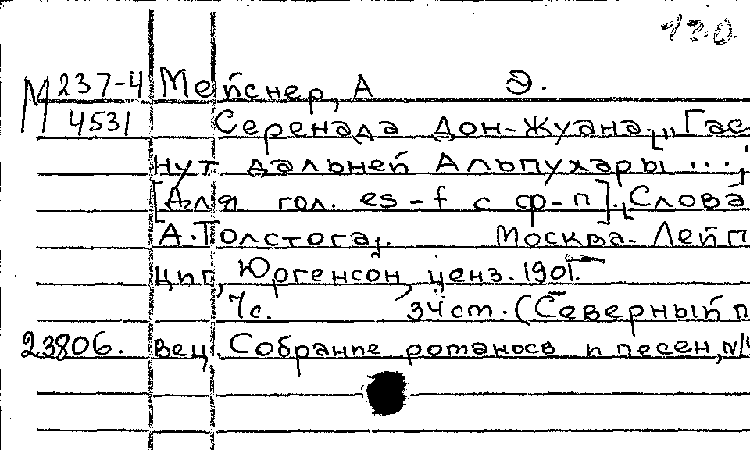 130
М 237-4 Мейснер, А Э.
4531 Серенада Дон-Жуана, „Гас
нут дальней Альпухары ...,
[Для гол. es-f с ф-п]. Слова
А. Толстога. Москва-Лейп
циг, Юргенсон, ценз. 1901.
7с. 34cm. (Северный п
23806. вец. Собрание романсов и песен, №